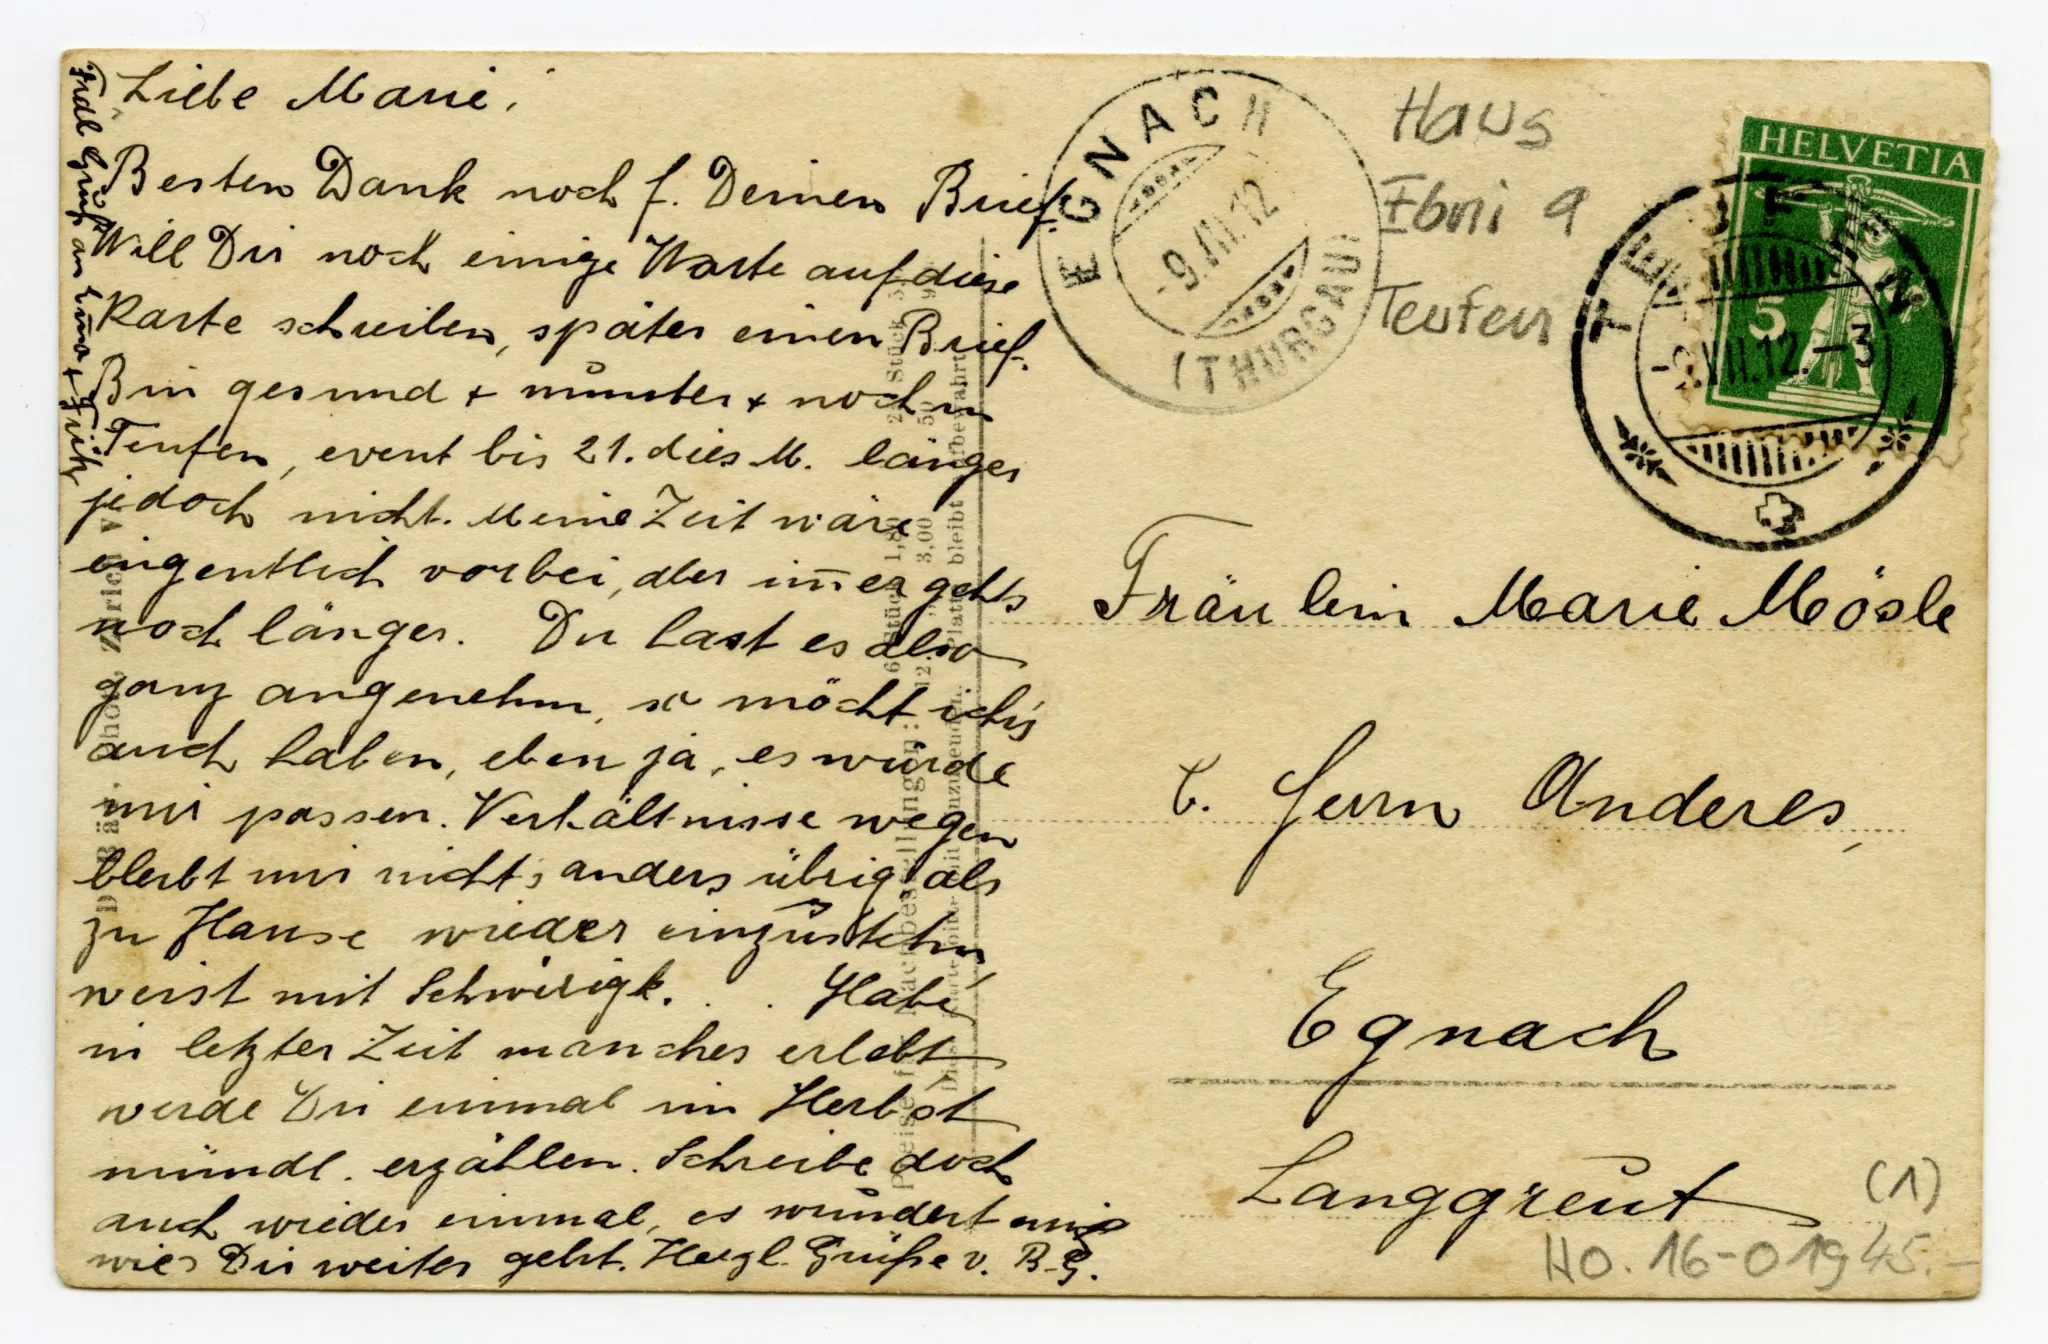 Liebe Marie!
Besten Dank noch f. Deinen Brief.
Will Dir noch einige Worte auf diese
Karte schreiben, später einen Brief.
Bin gesund + munter + noch in
Teufen, event bis 21. dies M. länger
jedoch nicht. Meine Zeit wäre
eigentlich vorbei, aber im̅er gehts
noch länger. Du hast es also
ganz angenehm, so möcht ich's
auch haben, eben ja, es würde
mir passen. Verhältnisse wegen
bleibt mir nicht, anders übrig als
zu Hause wieder einzustehn
weist mit Schwirigk. . . Habe
in letzter Zeit manches erlebt
werde Dir einmal im Herbst
mündl. erzählen. Schreibe doch
auch wieder einmal, es wundert mich
wies Dir weiter geht. Herzl. Grüße v. B. G.
Frdl. Gruß an Emma + Fritz
EGNACH
-9.VII.12
(THURGAU)
Haus
Ebni 9
Teufen
HELVETIA
5
TEUFEN
-9.VII.12.-3
Fräulein Marie Mösle
b. Herrn Anderes,
Egnach
Langgreut
(1)
HO. 16-01945.-
Zürich V
Nachbestellungen:
6 Stück 1,80
12 " 3,00
25 Stück
50
Platte bleibt aufbewahrt